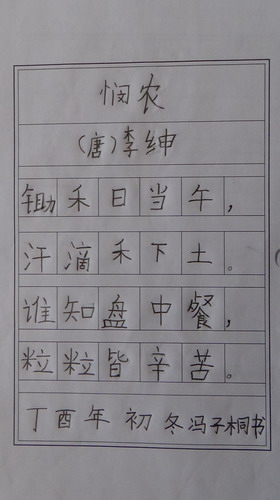 悯农
(唐)李绅
锄禾日当午，
汗滴禾下土。
谁知盘中餐，
粒粒皆辛苦。
丁酉年初冬冯子桐书